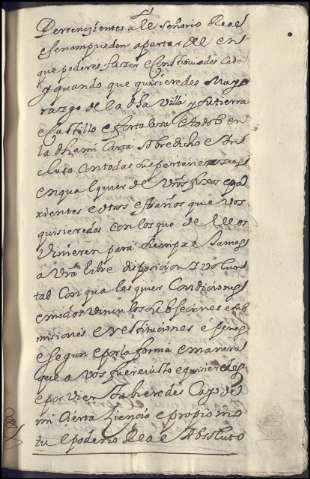 Pertenezientes a el señorio Real
e se non pueden apartar del en
que podares fazer e constituades cada
y quando que quisieredes mayo
razgo de la dha villa y su tierra
e castillo e fortaleza todo en
la dha mi carta sobredicho e in
cluto con todas sus pertenenzias
en qualquier de vros fixos e pa
rientes e otros estraños que vos
quisieredes con los que de ellos
vinieren para siempre jamas
a vra libre disposicion y volun
tad con qualesquier condiciones
e modos vinculos e sub
misiones e restituciones e penas
e segun e por la forma e manera
que a vos fuere visto e quisieredes
e por vien tubieredes Ca yo de
mi cierta ziencia e propio mo
tu e poderio Real absoluto